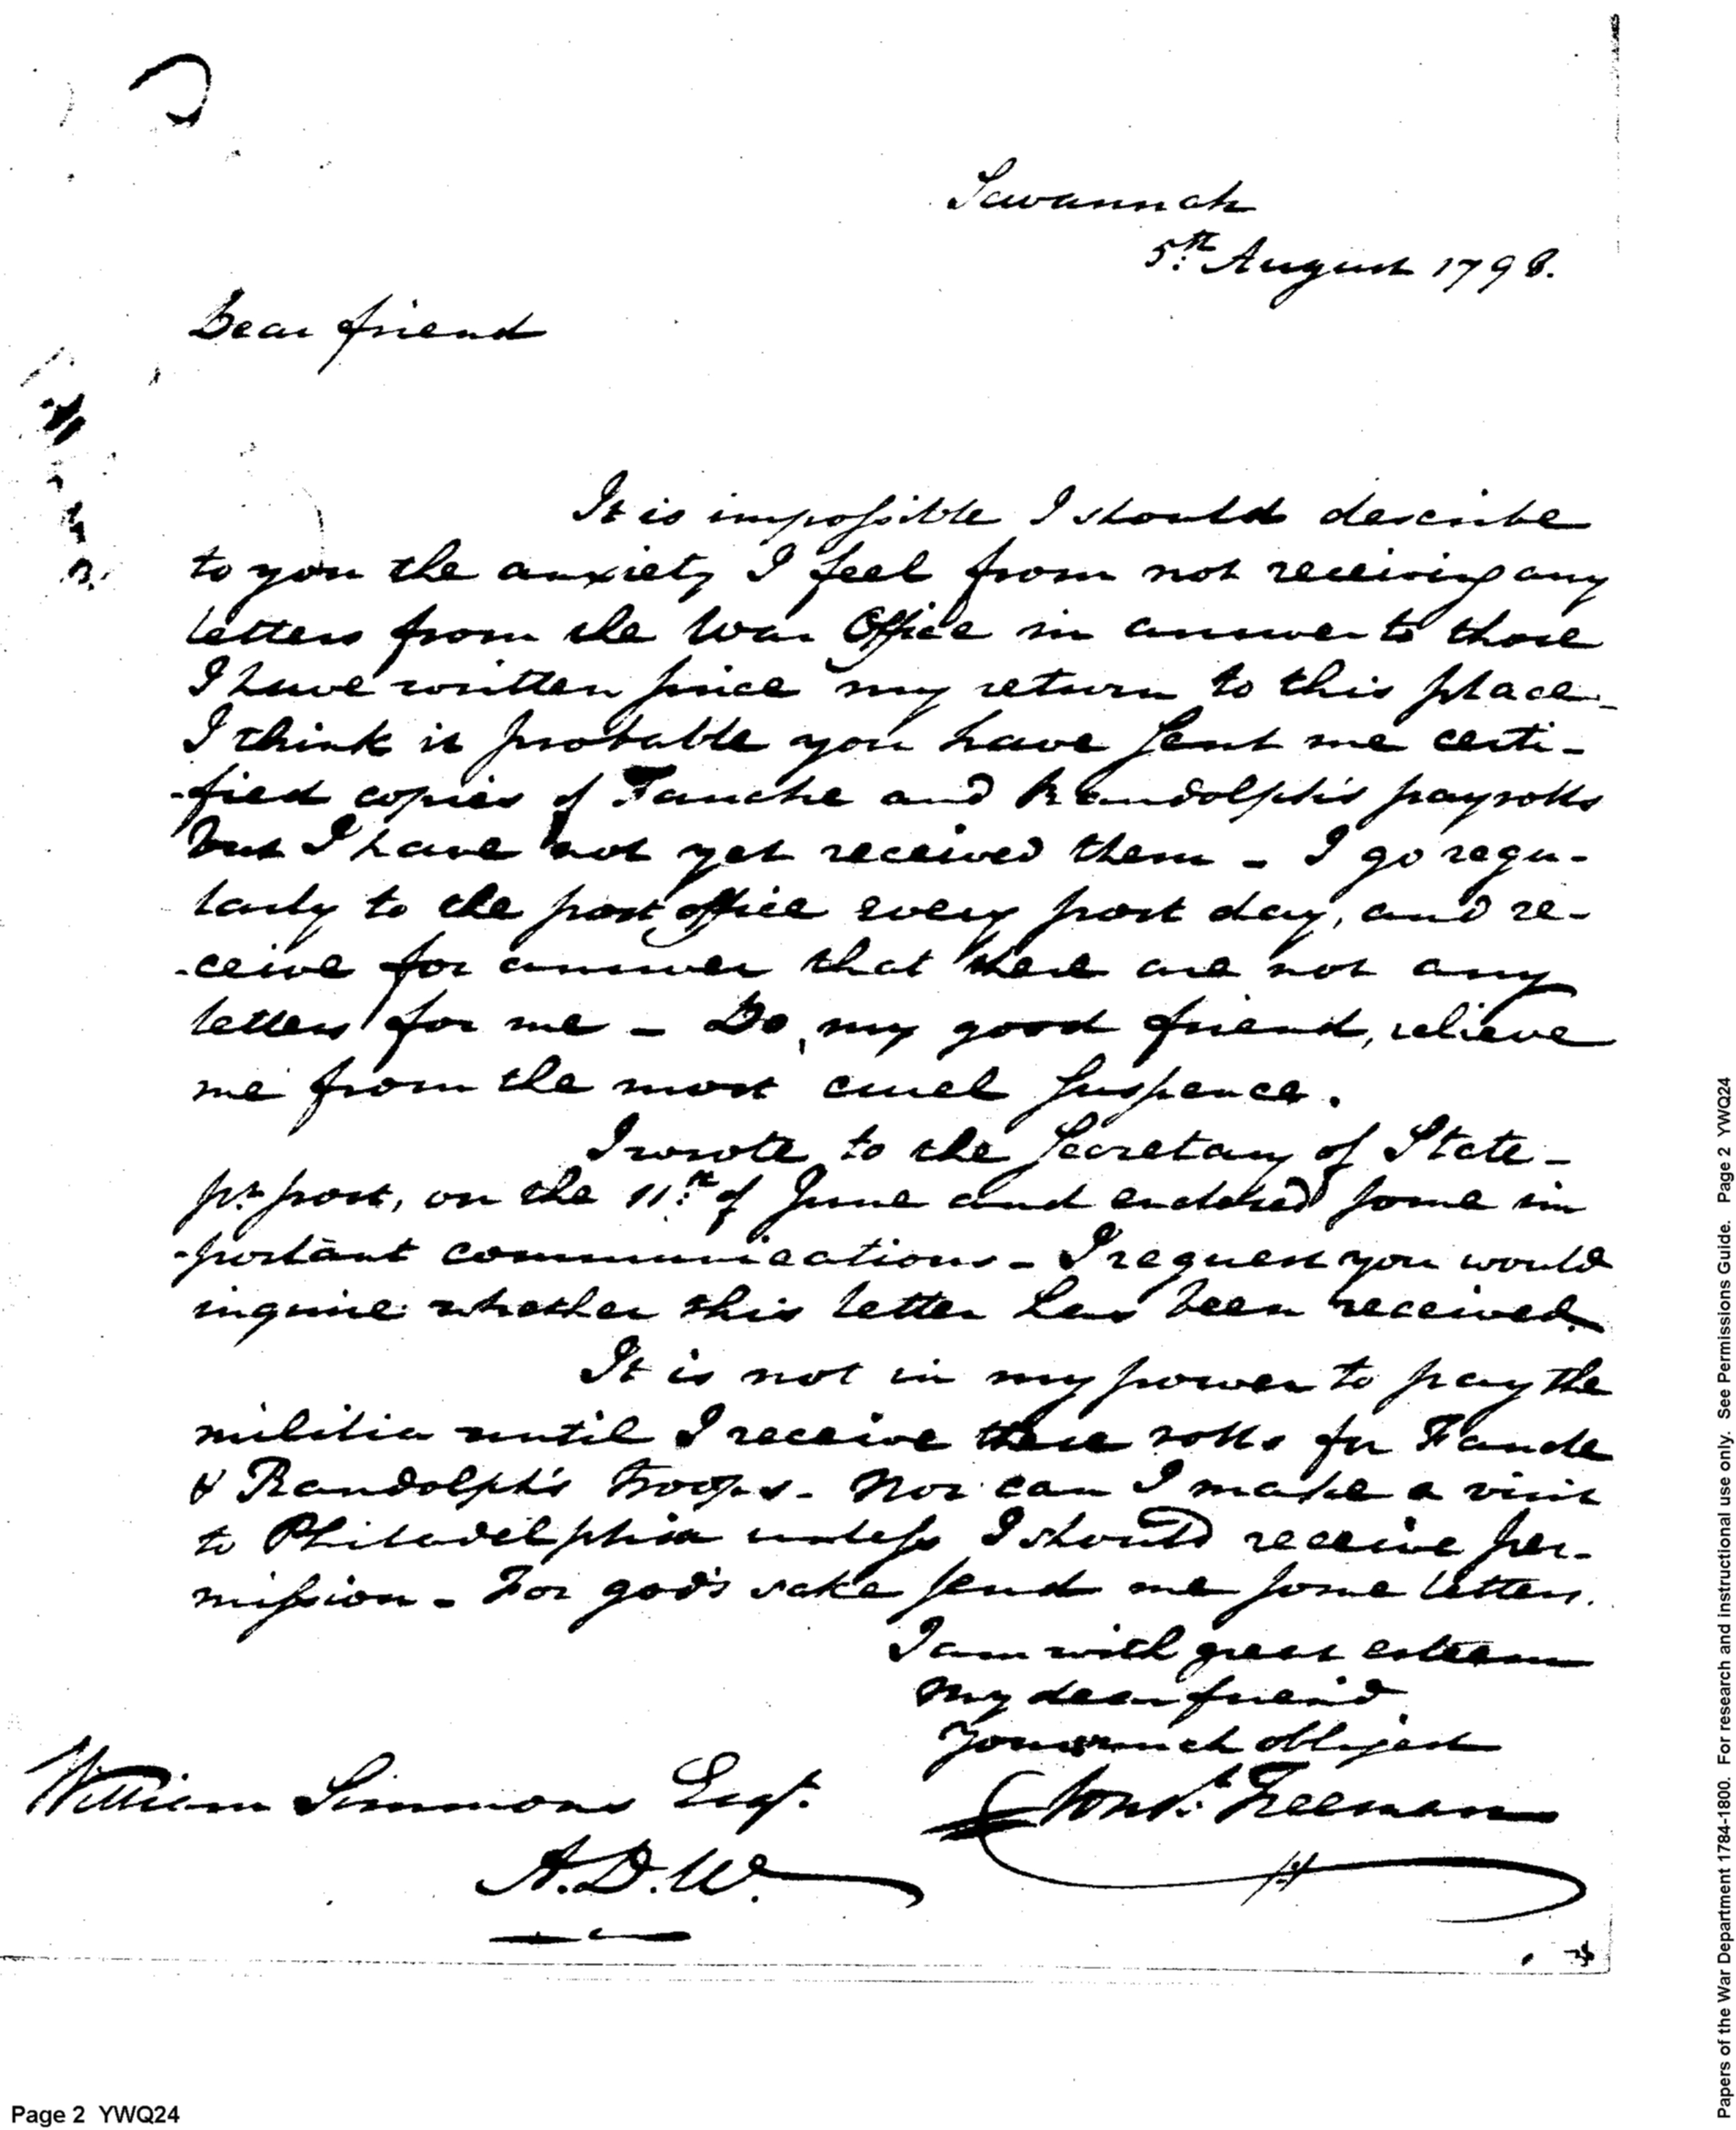 Savannah
5th August 1798.
Dear friend
It is impossible I should describe
to you the anxiety I feel from not receiving any
letters from the War Office in answer to those
I have written since my return to this place -
I think it probable you have sent me certi-
-fied copies of Fauche and Randolph's payrolls
but I have not yet received them - I go regu-
larly to the post office every post day, and re-
-ceive for answer that there are not any
letters for me - Do, my good friend, relieve
me from the most cruel suspence.
I wrote to the Secretary of State -
pr. post, on the 11th of June and enclosed some im
-portant communications - I request you would
inquire whether this letter has been received.
It is not in my power to pay the
militia until I receive these rolls for Fauche
& Randolph's troops - Nor can I make a visit
to Philadelphia unless I should receive per-
mission - For god's sake send me some letters.
I am with great esteem
My dear friend
Your much obliged
Const. Freeman
William Simmons Esqr.
A.D.W.
Page 2 YWQ24
Papers of the War Department 1784-1800. For research and instructional use only. See Permissions Guide. Page 2 YWQ24